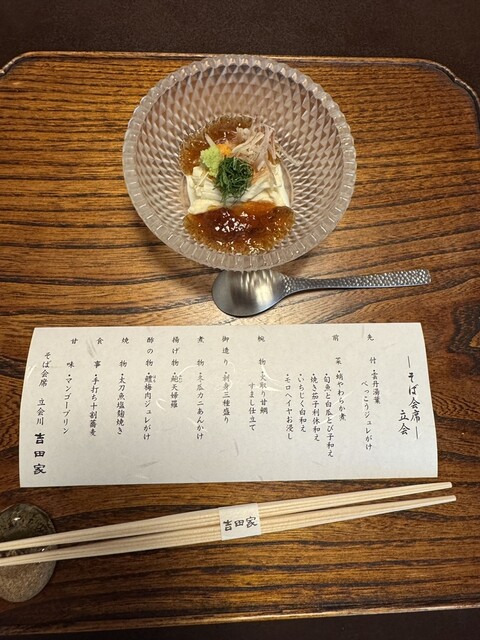 ―そば会席―
立会
先付・雲丹湯葉
べっこうジュレがけ
前菜・蛸やわらか煮
・旬魚と白瓜とび子和え
・焼き茄子利休和え
・いちじく白和え
・モロヘイヤお浸し
椀物・太取り甘鯛
すまし仕立て
御造り・刺身三種盛り
煮物・冬瓜カニあんかけ
揚げ物・鮑天婦羅
酢の物・鱧梅肉ジュレがけ
焼物・太刀魚塩麹焼き
食事・手打ち十割蕎麦
甘味・マンゴープリン
そば会席 立会川 吉田家
吉田家